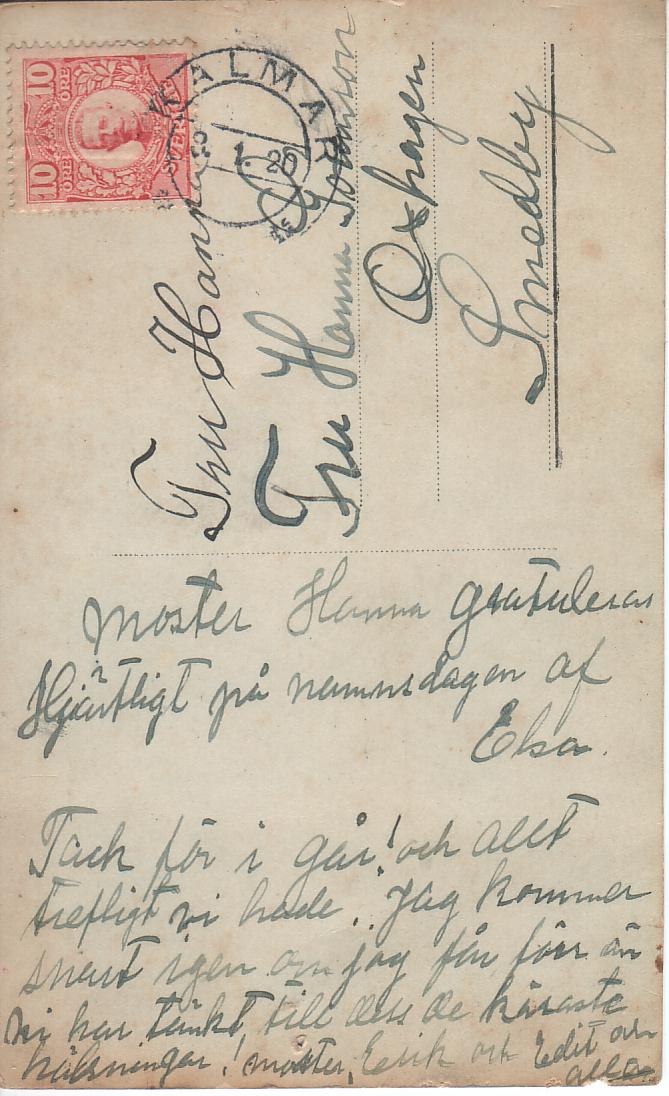 10 ÖRE
10 ÖRE
SVERIGE
KALMAR
1. 20
Fru Hanna
Fru Hanna
Oxhagen
Smedby
Moster Hanna gratuleras
Hjärtligt på namnsdagen af
Elsa.
Tack för i går! och allt
trefligt vi hade. Jag kommer
snart igen om jag får förr än
vi har tänkt, till dess de käraste
hälsningar! moster, Erik och Edit och
alla